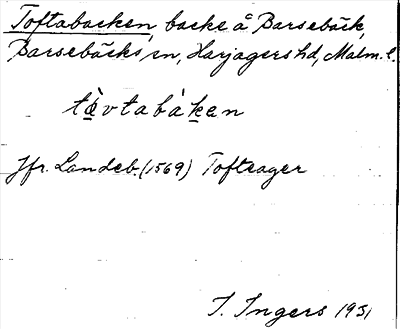 Toftabacken, backe å Barsebäck,
Barsebäcks sn, Harjagers hd, Malm. l.
tàvtabàkan
Jfr. Landeb. (1569) Tofteager
I. Ingers 1931